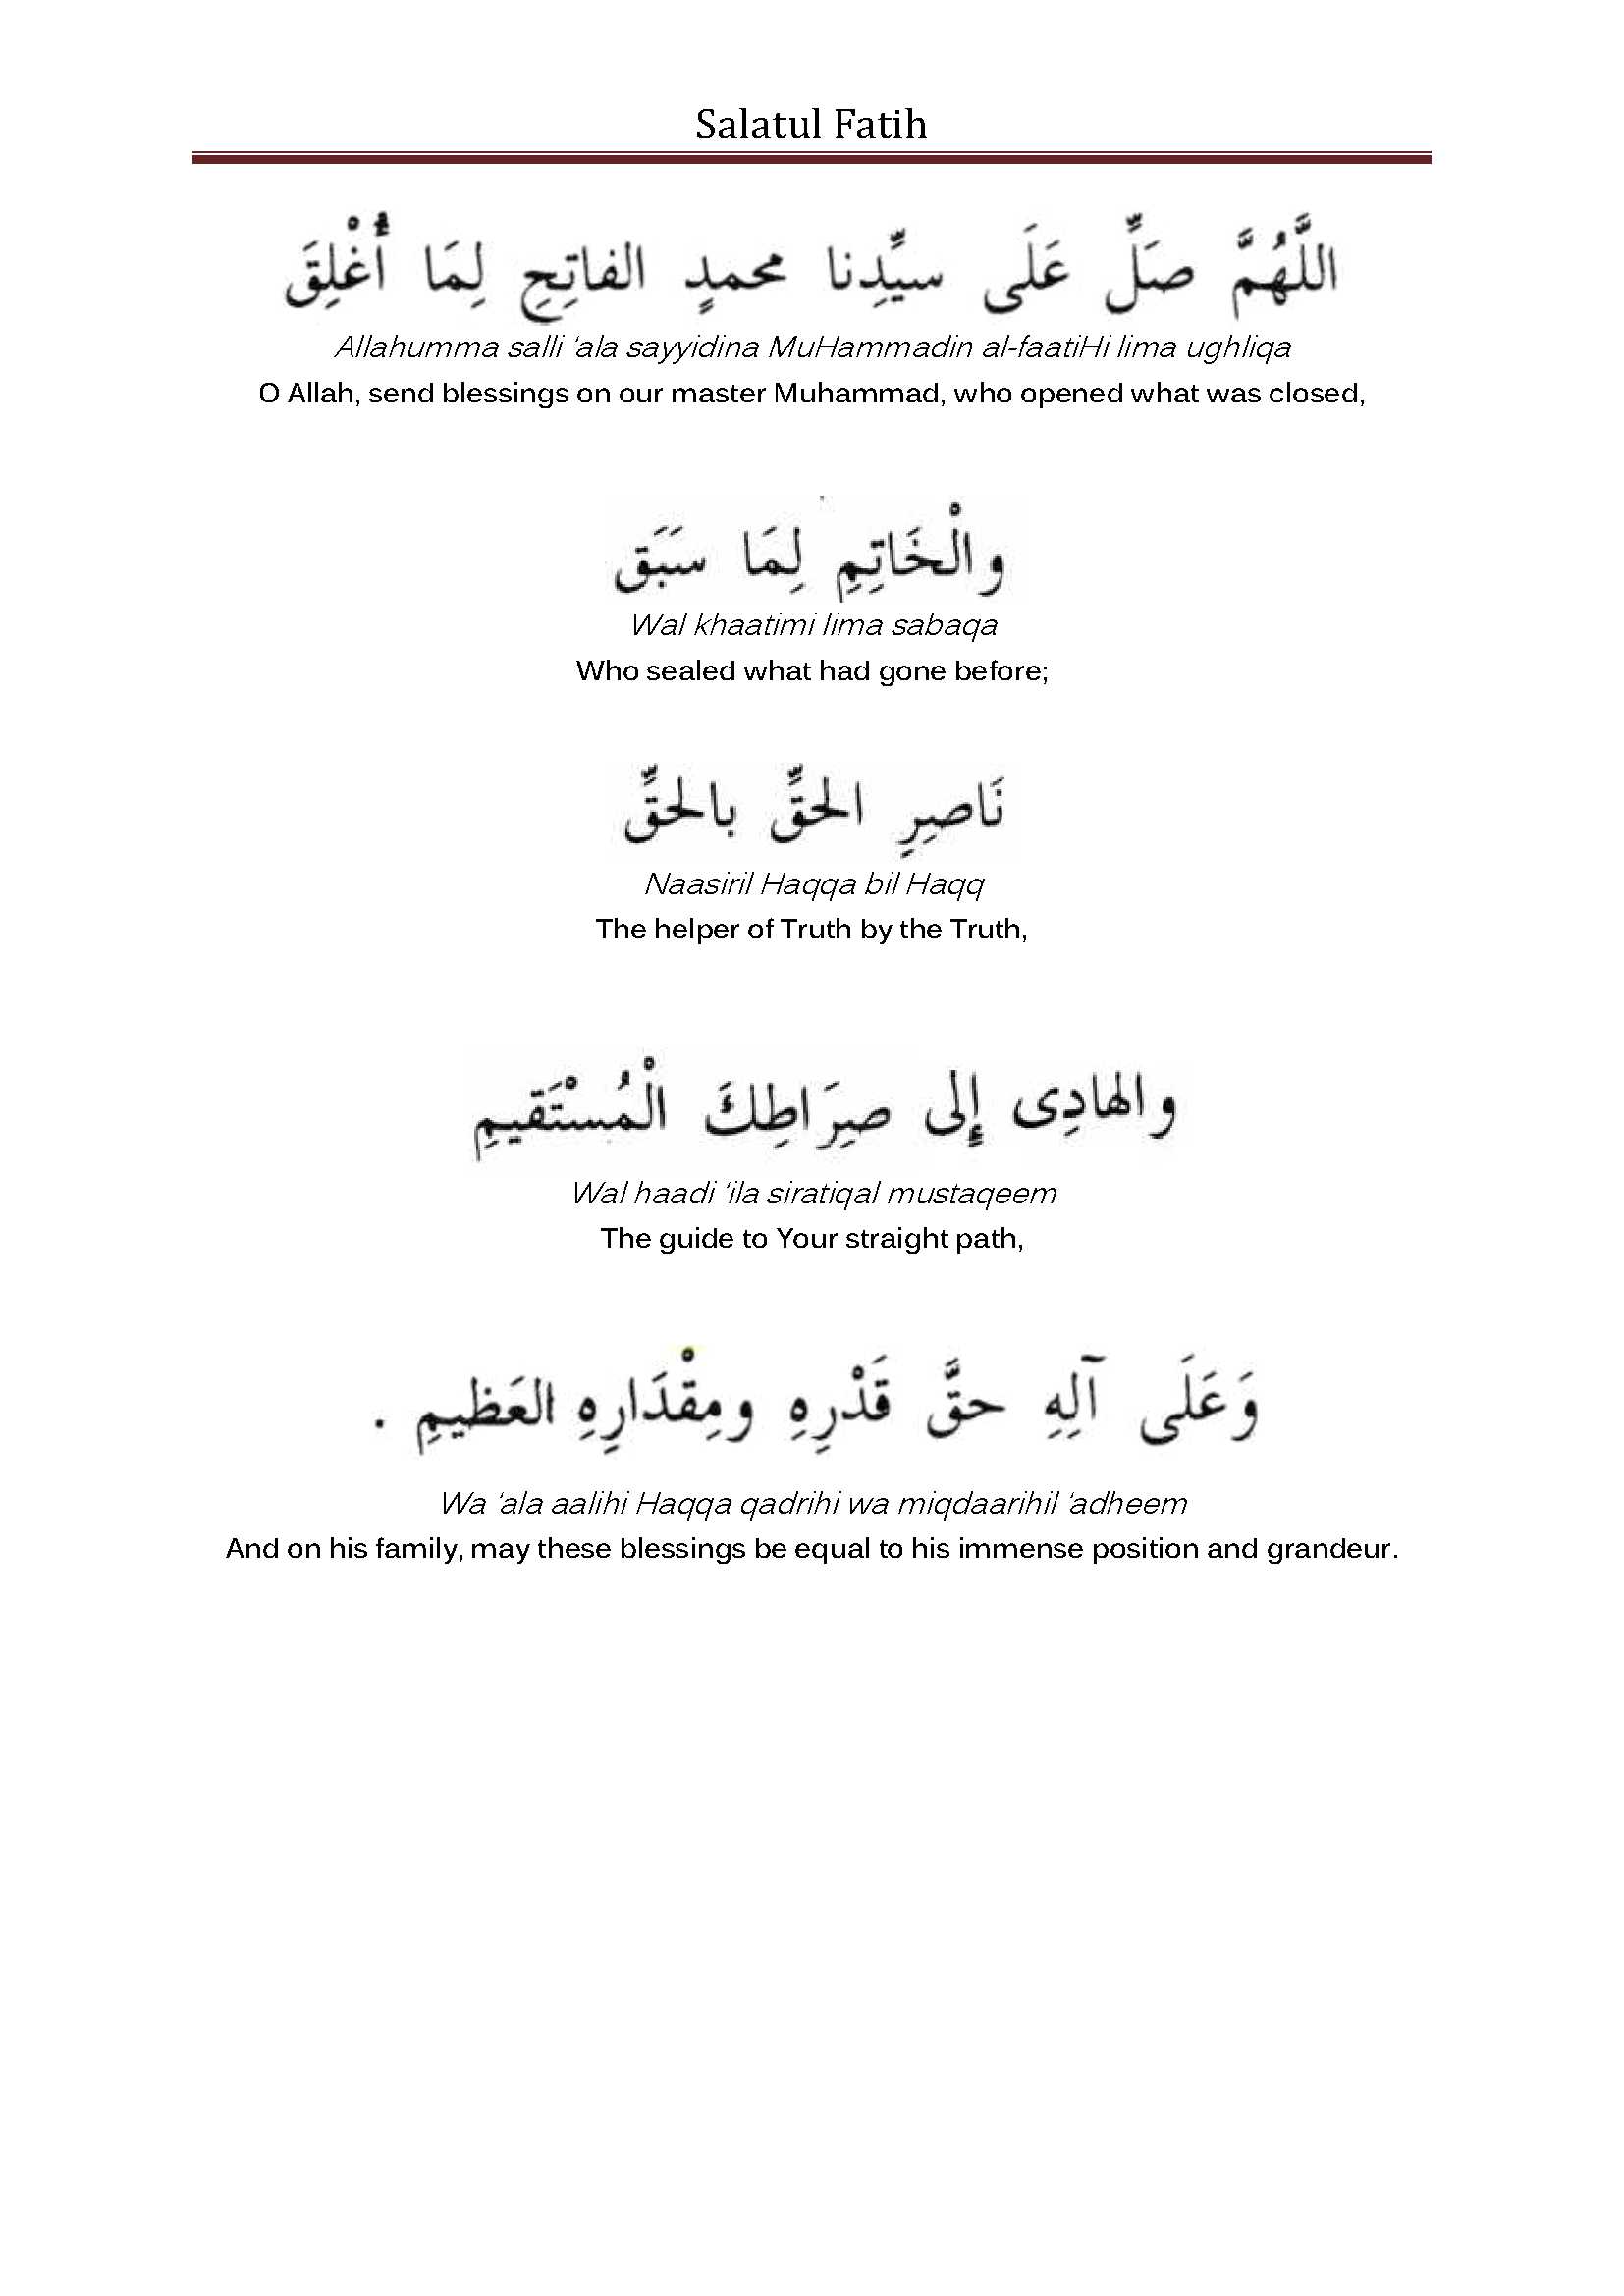 Salatul Fatih
اللَّهُمَّ صَلِّ عَلَى سيِّدِنا محمدٍ الفاتِحِ لِمَا أُغْلِقَ
Allahumma salli ‘ala sayyidina MuHammadin al-faatiHi lima ughliqa
O Allah, send blessings on our master Muhammad, who opened what was closed,
والْخَاتِمِ لِمَا سَبَق
Wal khaatimi lima sabaqa
Who sealed what had gone before;
نَاصِرِ الحقِّ بالحقِّ
Naasiril Haqqa bil Haqq
The helper of Truth by the Truth,
والهادِى إِلى صِرَاطِكَ الْمُسْتَقيمِ
Wal haadi ‘ila siratiqal mustaqeem
The guide to Your straight path,
وَعَلَى آلِهِ حقَّ قَدْرِهِ ومِقْدَارِهِ العَظيمِ .
Wa ‘ala aalihi Haqqa qadrihi wa miqdaarihil ‘adheem
And on his family, may these blessings be equal to his immense position and grandeur.